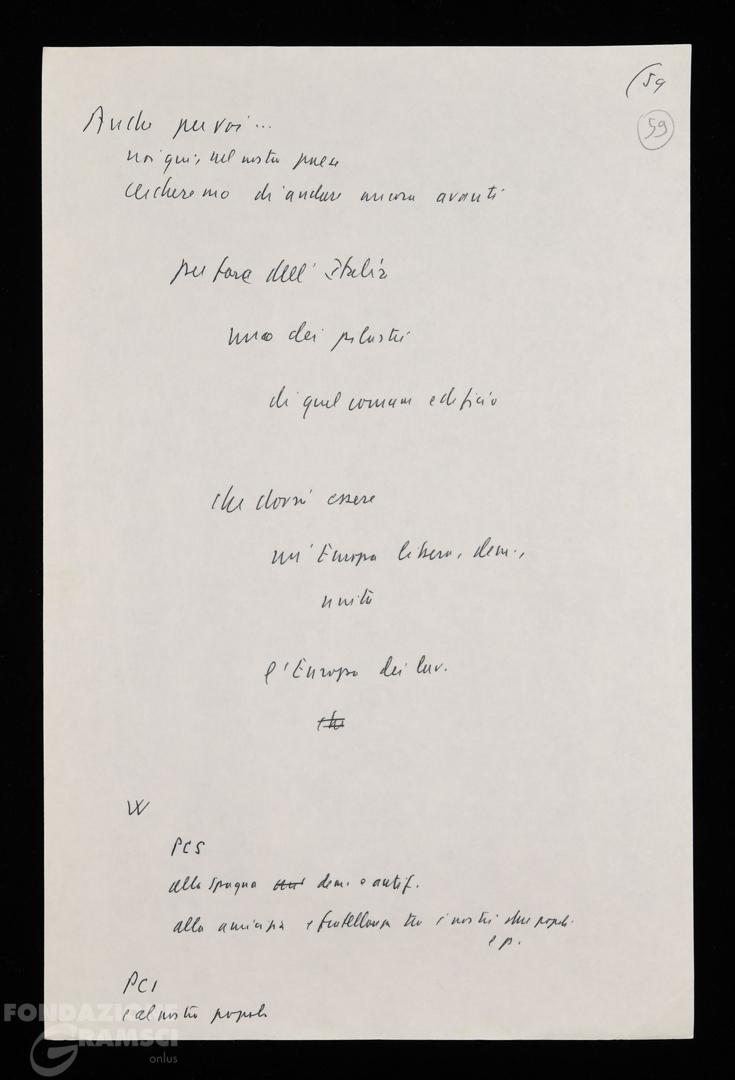 (59
59
Anche per voi...
noi qui, nel nostro paese
cercheremo di andare ancora avanti
per fare dell'Italia
uno dei pilastri
di quel comune edificio
che dovrà essere
un'Europa libera, dem.,
unita
l'Europa dei lav.
che
W
PCS
alla Spagna dem. e antif.
alla amicizia e fratellanza tra i nostri due popoli
e p.
PCI
e al nostro popolo
FONDAZIONE
GRAMSCI
onlus